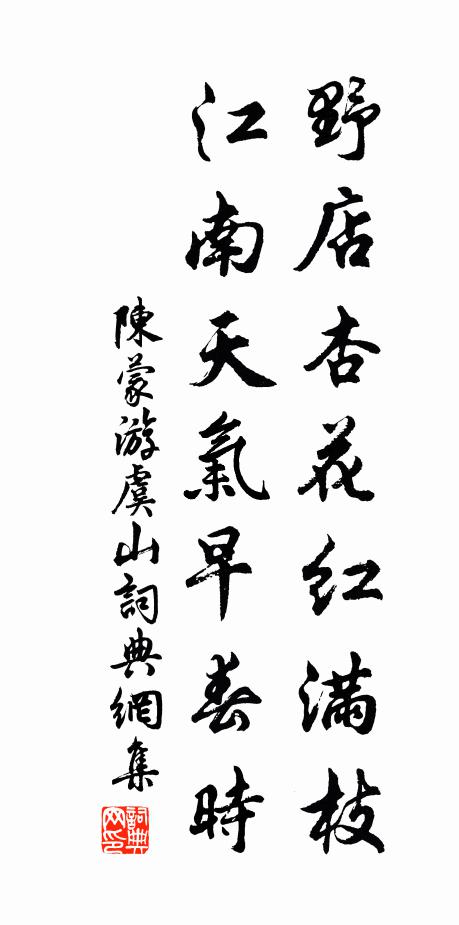 野店杏花红滿枝
江南天氣早春時
陳蒙游虞山詞典網集
詞典网印